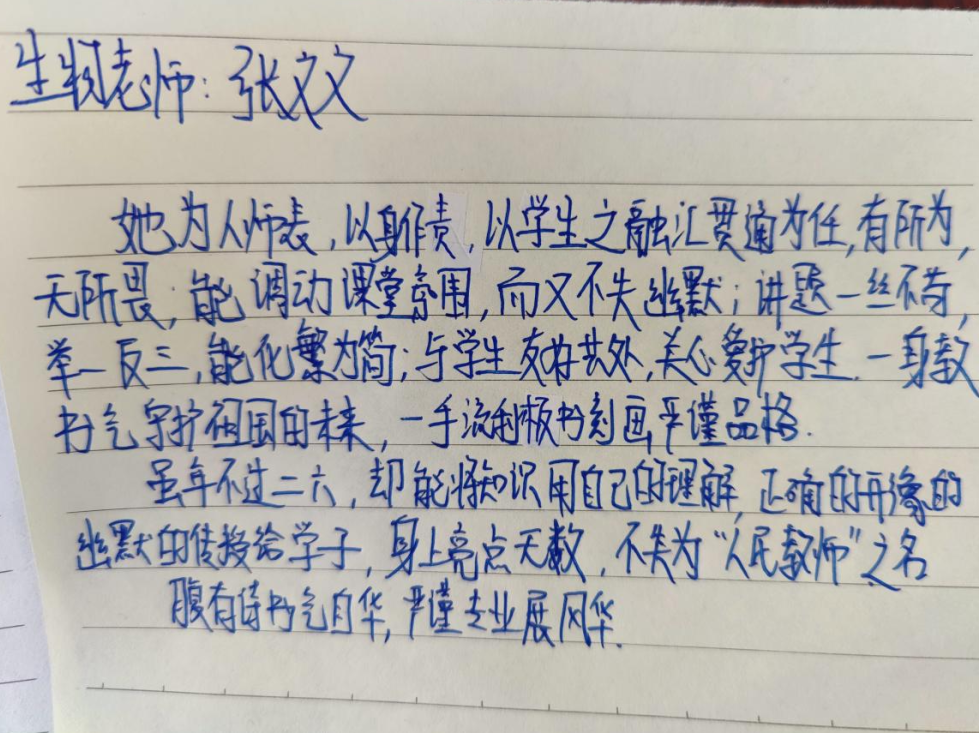 生物老师：张文文
她为人师表，以身作责，以学生之融汇贯通为任，有所为，
无所畏；能调动课堂氛围，而又不失幽默；讲题一丝不苟，
举一反三，能化繁为简；与学生友好共处，关心爱护学生．一身教
书气守护祖国的未来，一手流利板书刻画严谨品格．
虽年不过二六，却能将知识用自己的理解，正确的形象的
幽默的传授给学子，身上亮点无数，不失为“人民教师”之名
腹有诗书气自华，严谨专业展风华．